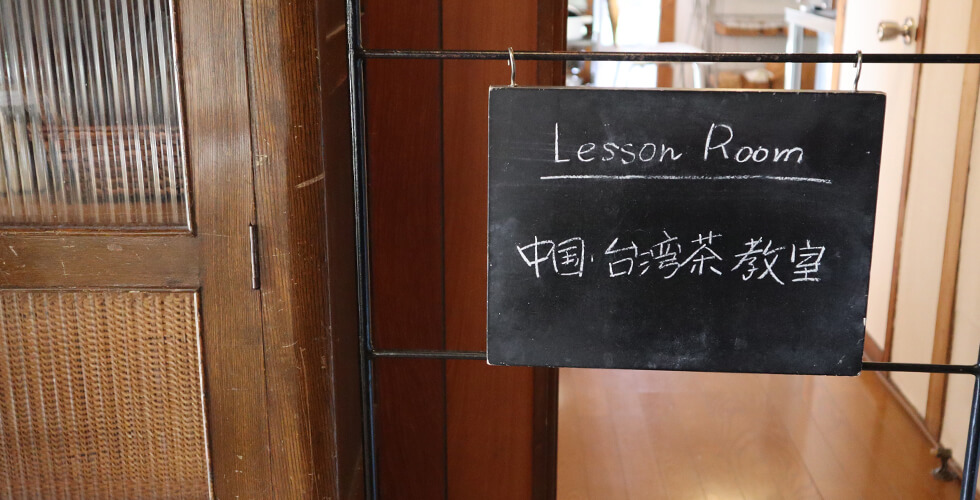 Lesson Room
中国·台湾茶教室